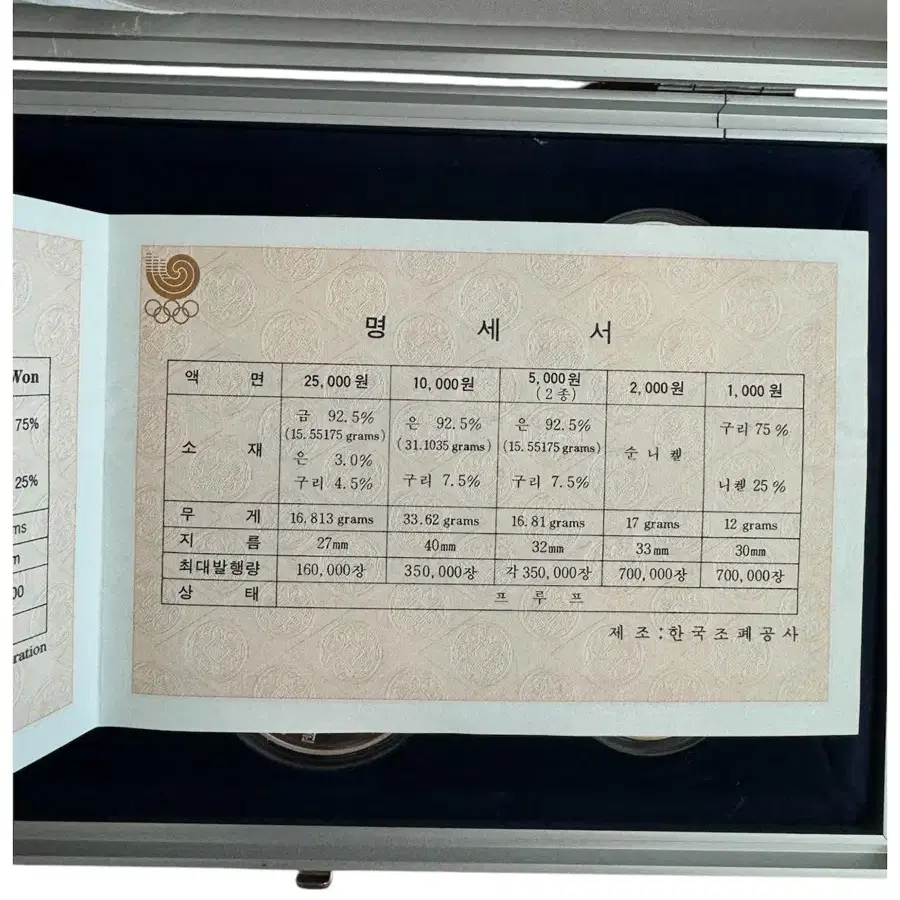 Won
75%
25%
명 세 서
액 면 25,000원 10,000원 5,000원 (2종) 2,000원 1,000 원
소 재
금 92.5%
(15.55175 grams)
은 3.0%
구리 4.5%
은 92.5%
(31.1035 grams)
구리 7.5%
은 92.5%
(15.55175 grams)
구리 7.5%
순 니 켈
구리 75 %
니켈 25 %
무 게 16,813 grams 33.62 grams 16.81 grams 17 grams 12 grams
지 름 27mm 40mm 32mm 33mm 30mm
최대발행량 160,000장 350,000장 각 350,000장 700,000장 700,000장
상 태 프 루 프
제 조 : 한국조폐공사